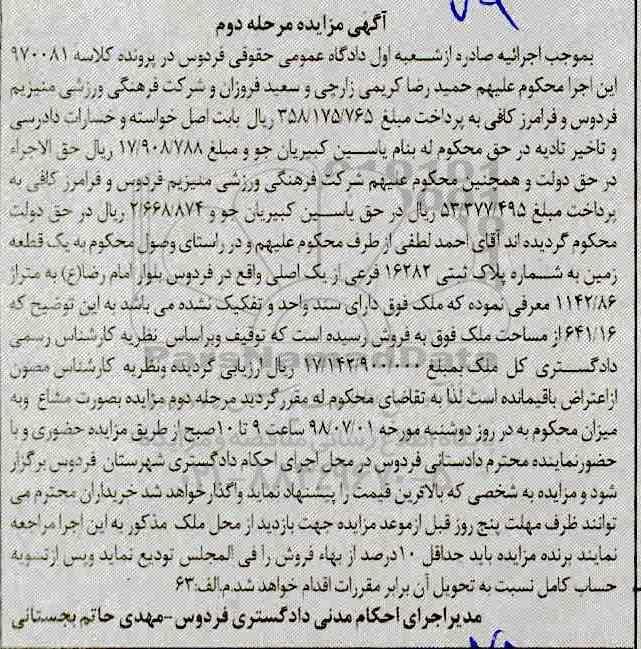 آگهی مزایده مرحله دوم
بموجب اجرائیه صادره از شعبه اول دادگاه عمومی حقوقی فردوس در پرونده کلاسه ۹۷۰۰۸۱
این اجرا محکوم علیهم حمید رضا کریمی زارچی و سعید فروزان و شرکت فرهنگی ورزشی منیزیم
فردوس و فرامرز کافی به پرداخت مبلغ ۳۵۸/۱۷۵/۷۶۵ ریال بابت اصل خواسته و خسارات دادرسی
و تاخیر تادیه در حق محکوم له بنام یاسین کبیریان جو و مبلغ ۱۷/۹۰۸/۷۸۸ ریال حق الاجراء
در حق دولت و همچنین محکوم علیهم شرکت فرهنگی ورزشی منیزیم فردوس و فرامرز کافی به
پرداخت مبلغ ۵۳/۳۷۷/۴۹۵ ریال در حق یاسین کبیریان جو و ۲/۶۶۸/۸۷۴ ریال در حق دولت
محکوم گردیده اند آقای احمد لطفی از طرف محکوم علیهم و در راستای وصول محکوم به یک قطعه
زمین به شماره پلاک ثبتی ۱۶۲۸۲ فرعی از یک اصلی واقع در فردوس بلوار امام رضا(ع) به متراژ
۱۱۴۲/۸۶ معرفی نموده که ملک فوق دارای سند واحد و تفکیک نشده می باشد به این توضیح که
۶۴۱/۱۶ از مساحت ملک فوق به فروش رسیده است که توقیف وبراساس نظریه کارشناس رسمی
دادگستری کل ملک بمبلغ ۱۷/۱۴۲/۹۰۰/۰۰۰ ریال ارزیابی گردیده ونظریه کارشناس مصون
ازاعتراض باقیمانده است لذا به تقاضای محکوم له مقرر گردید مرحله دوم مزایده بصورت مشاع وبه
میزان محکوم به در روز دوشنبه مورخه ۹۸/۰۷/۰۱ ساعت ۹ تا ۱۰صبح از طریق مزایده حضوری و با
حضورنماینده محترم دادستانی فردوس در محل اجرای احکام دادگستری شهرستان فردوس برگزار
شود و مزایده به شخصی که بالاترین قیمت را پیشنهاد نماید واگذارخواهد شد خریداران محترم می
توانند ظرف مهلت پنج روز قبل ازموعد مزایده جهت بازدید از محل ملک مذکور به این اجرا مراجعه
نمایند برنده مزایده باید حداقل ۱۰درصد از بهاء فروش را فی المجلس تودیع نماید وپس ازتسویه
حساب کامل نسبت به تحویل آن برابر مقررات اقدام خواهد شد.م.الف:۶۳
مدیر اجرای احکام مدنی دادگستری فردوس-مهدی حاتم بجستانی
ParsNamadData